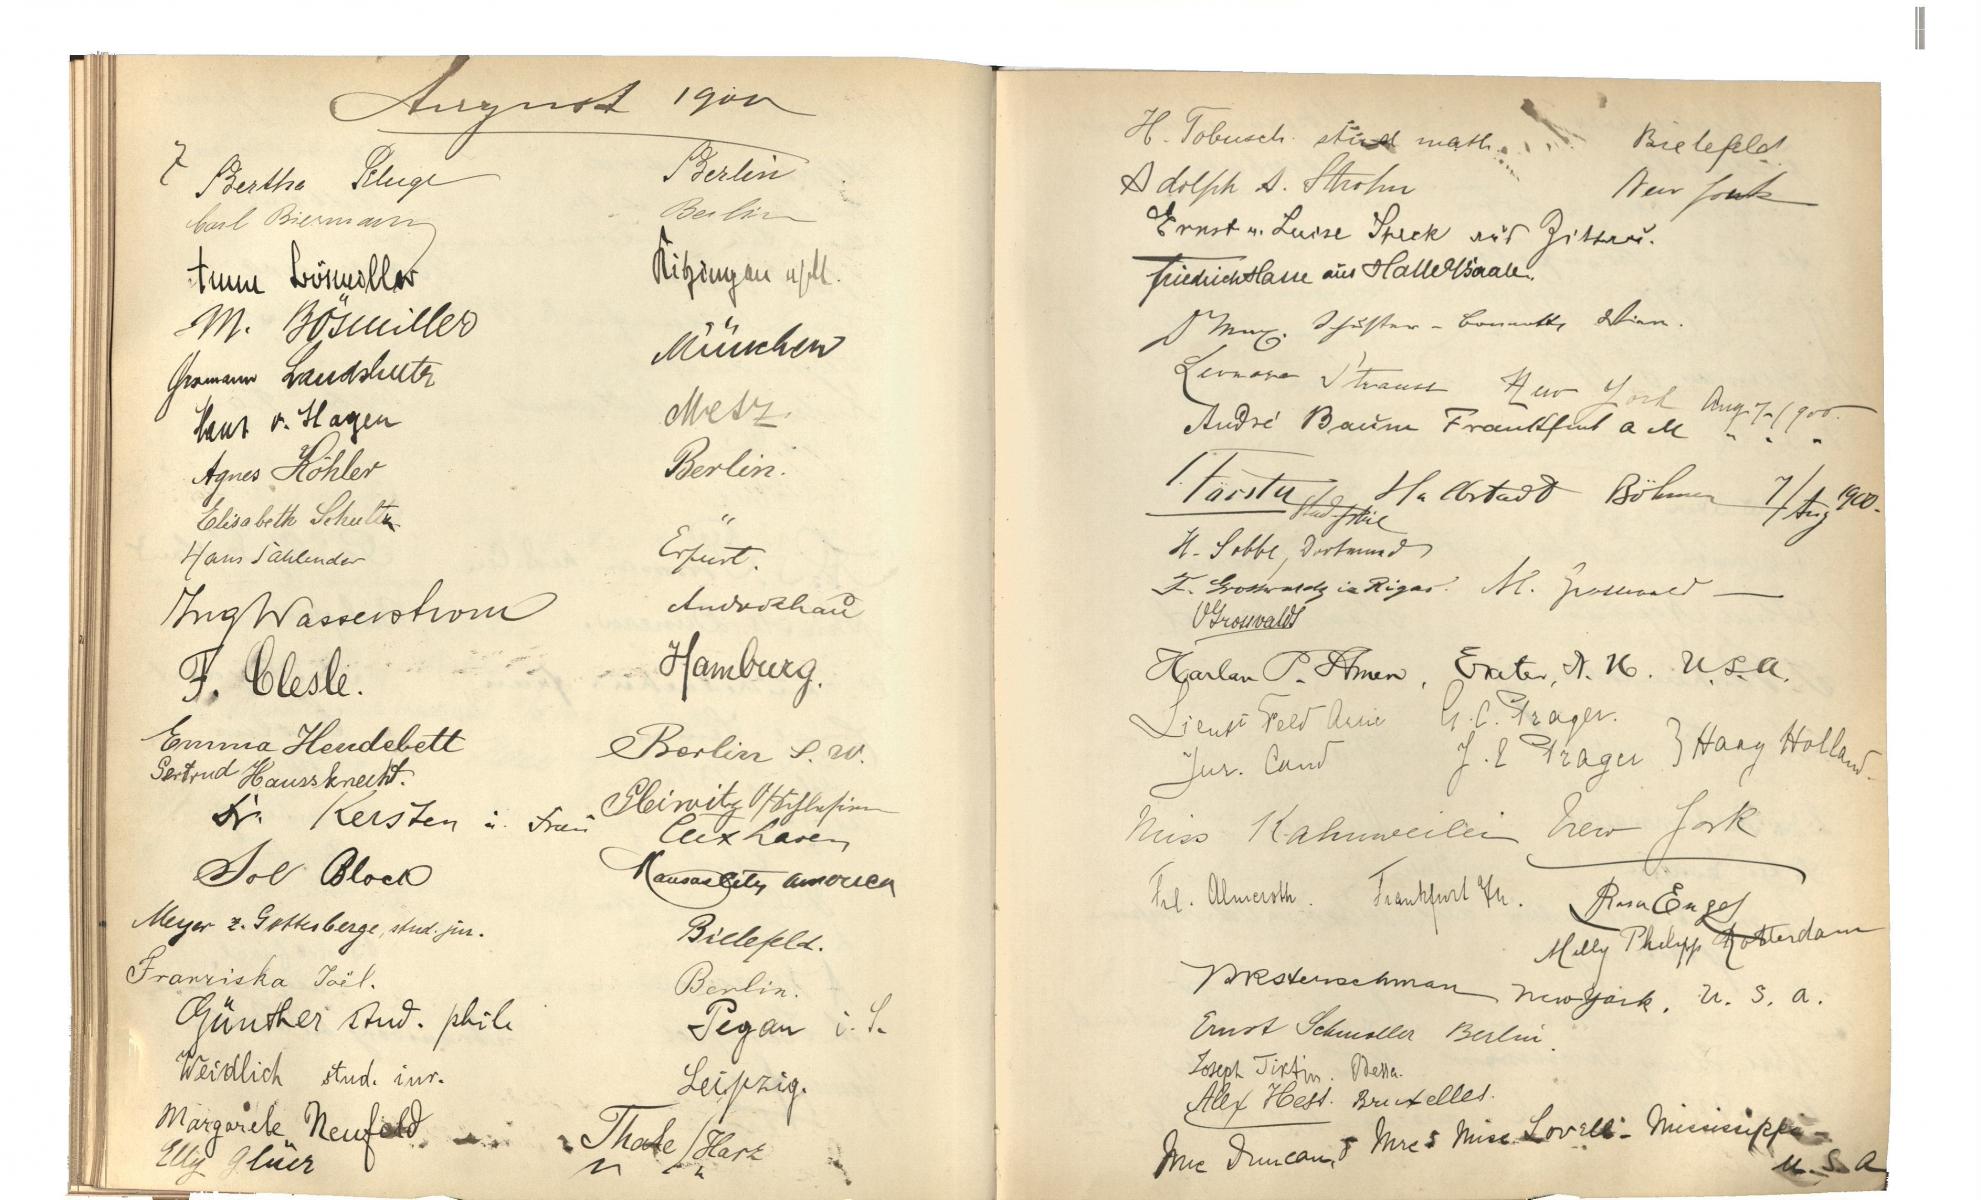 August 1900
7 Bertha Pluge Berlin
Carl Biermann Berlin
Anna Kitzingen a/M.
M. Bösmiller München
Hermann Landshutz
Hans v. Hagen Metz.
Agnes Köhler Berlin.
Elisabeth Schultze "
Hans Sahlender Erfurt.
Ing Wasserstrom
F. Clesle. Hamburg.
Emma Hendebett Berlin S. W.
Gertrud Haussknecht. Gleiwitz
Dr. Kersten u. Frau Cuxhaven
Sol Block Kansas City America
Meyer z. Gottesberge, stud. jur. Bielefeld.
Franziska Joël. Berlin.
Günther stud. phil. Pegau i. S.
Weidlich stud. iur. Leipzig.
Margarete Neufeld Thale/Harz
Elly Glüer " "
H. Tobusch. stud math. Bielefeld.
Adolph A. Strohn New York
Ernst u. Luise Speck aus Zittau.
Friedrich Hasse aus Halle a/Saale.
Schuster - Wien.
Strauss New York Aug. 7-1900.
André Baum Frankfurt a M " " "
Hallstadt Böhmen 7/Aug 1900.
H. Sobbe, Dortmund
F. Grosswald in Riga. M. Grosswald
Grosswald
Harlan P. Amen, Exeter, N. H. U.S.A.
Lieut Feld Artie G. C. Prager.
Jur. Cand J. E Prager } Haag Holland.
Miss Kahnweiler New York
Frl. Almeroth. Frankfurt Rosa Engel
Milly Philipp Rotterdam
New York, U. S. A.
Ernst Schmoller Berlin.
Joseph
Alex Hess. Bruxelles.
Mrs Duncan, & Mrs & Miss Lovell - Mississippi -
U. S. A